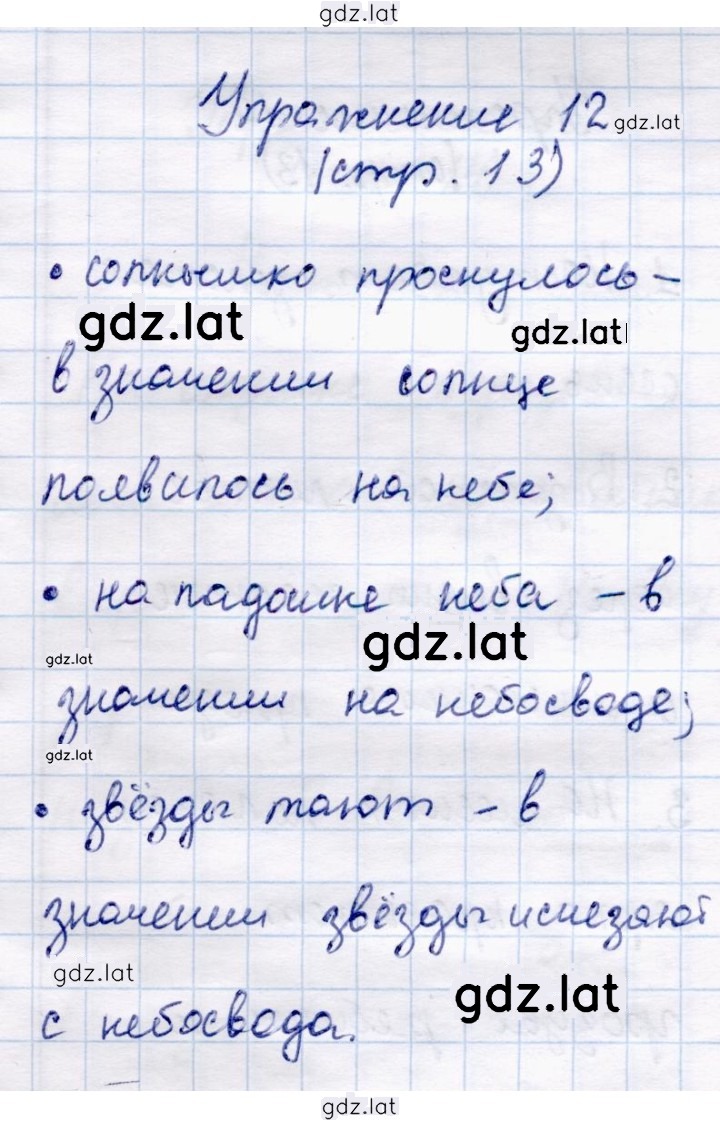 gdz.lat
Упражнение 12 gdz.lat
(стр. 13)
• солнышко проснулось –
gdz.lat gdz.lat
в значении солнце
появилось на небе;
• на ладошке неба – в
gdz.lat
gdz.lat
значении на небосводе;
gdz.lat
• звёзды тают – в
значении звёзды исчезают
gdz.lat
gdz.lat
с небосвода.
gdz.lat